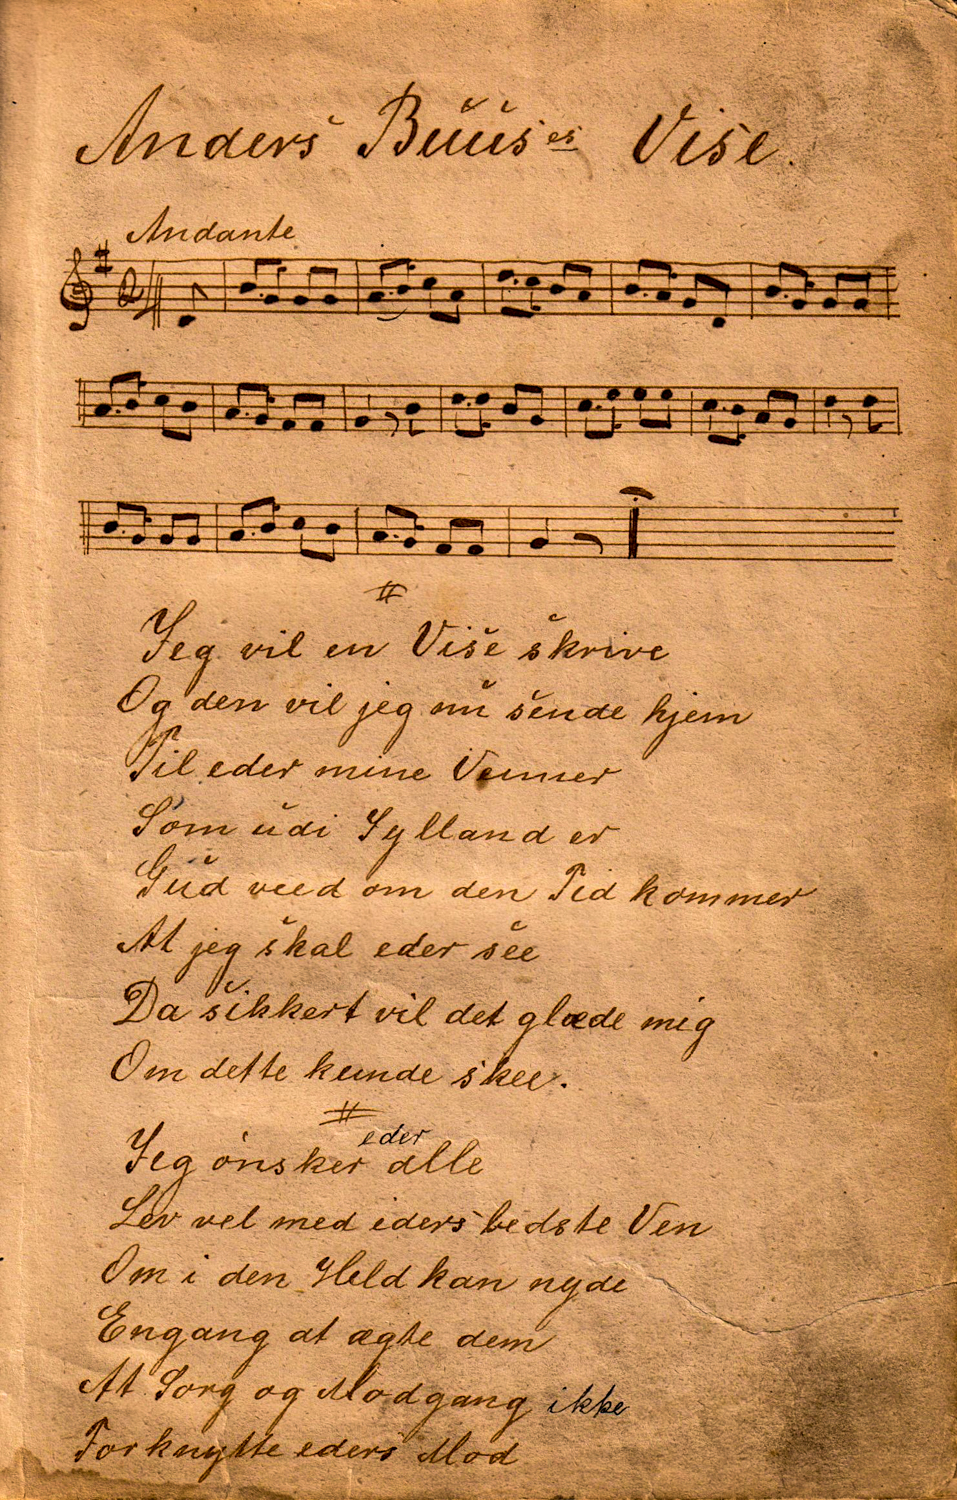 Anders Buuses Vise.
Andante
Jeg vil en Vise skrive
Og den vil jeg nu sende hjem
Til eder mine Venner
Som udi Jylland er
Gud veed om den Tid kommer
At jeg skal eder see
Da sikkert vil det glæde mig
Om dette kunde skee.
eder
Jeg ønsker alle
Lev vel med eders bedste Ven
Om i den Held kan nyde
Engang at ægte dem
At Sorg og Modgang ikke
Forknytte eders Mod